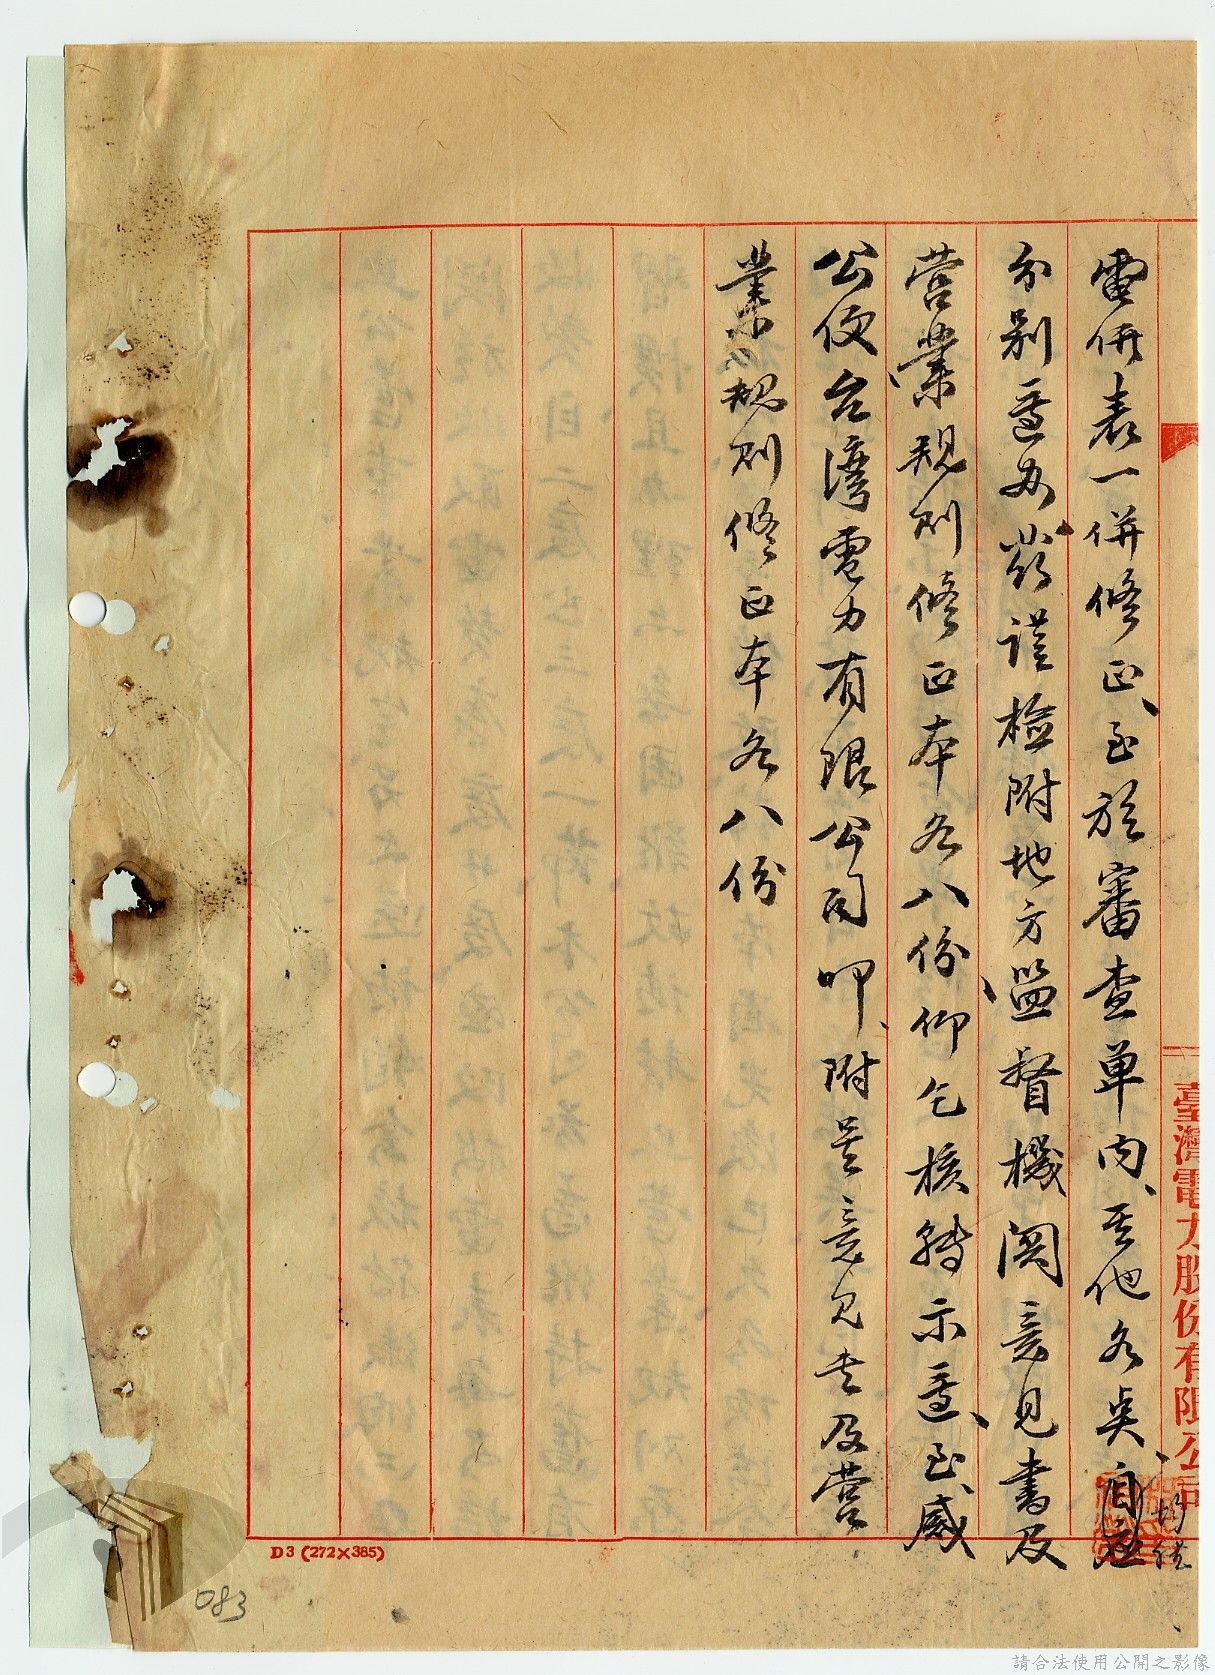 電併表一併修正、至於審查單內、其他各點、自應
均經
分別遵办茲謹檢附地方監督機関意見書及
营業規則修正本各八份、仰乞核轉示遵、至感
公便台湾電力有限公司叩、附呈意見书及营
業規則修正本各八份
臺灣電力股份有限公司
D3 (272×385)
083
請合法使用公開之影像